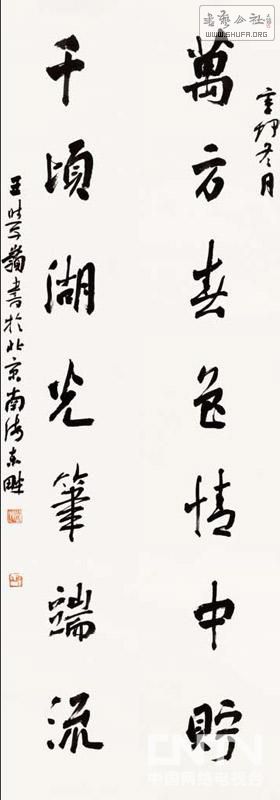 辛卯冬月
萬方春色情中貯
千頃湖光筆端流
王 書於北京南海东畔
书艺公社
WWW.SHUFA.ORG
CNTV
中国网络电视台